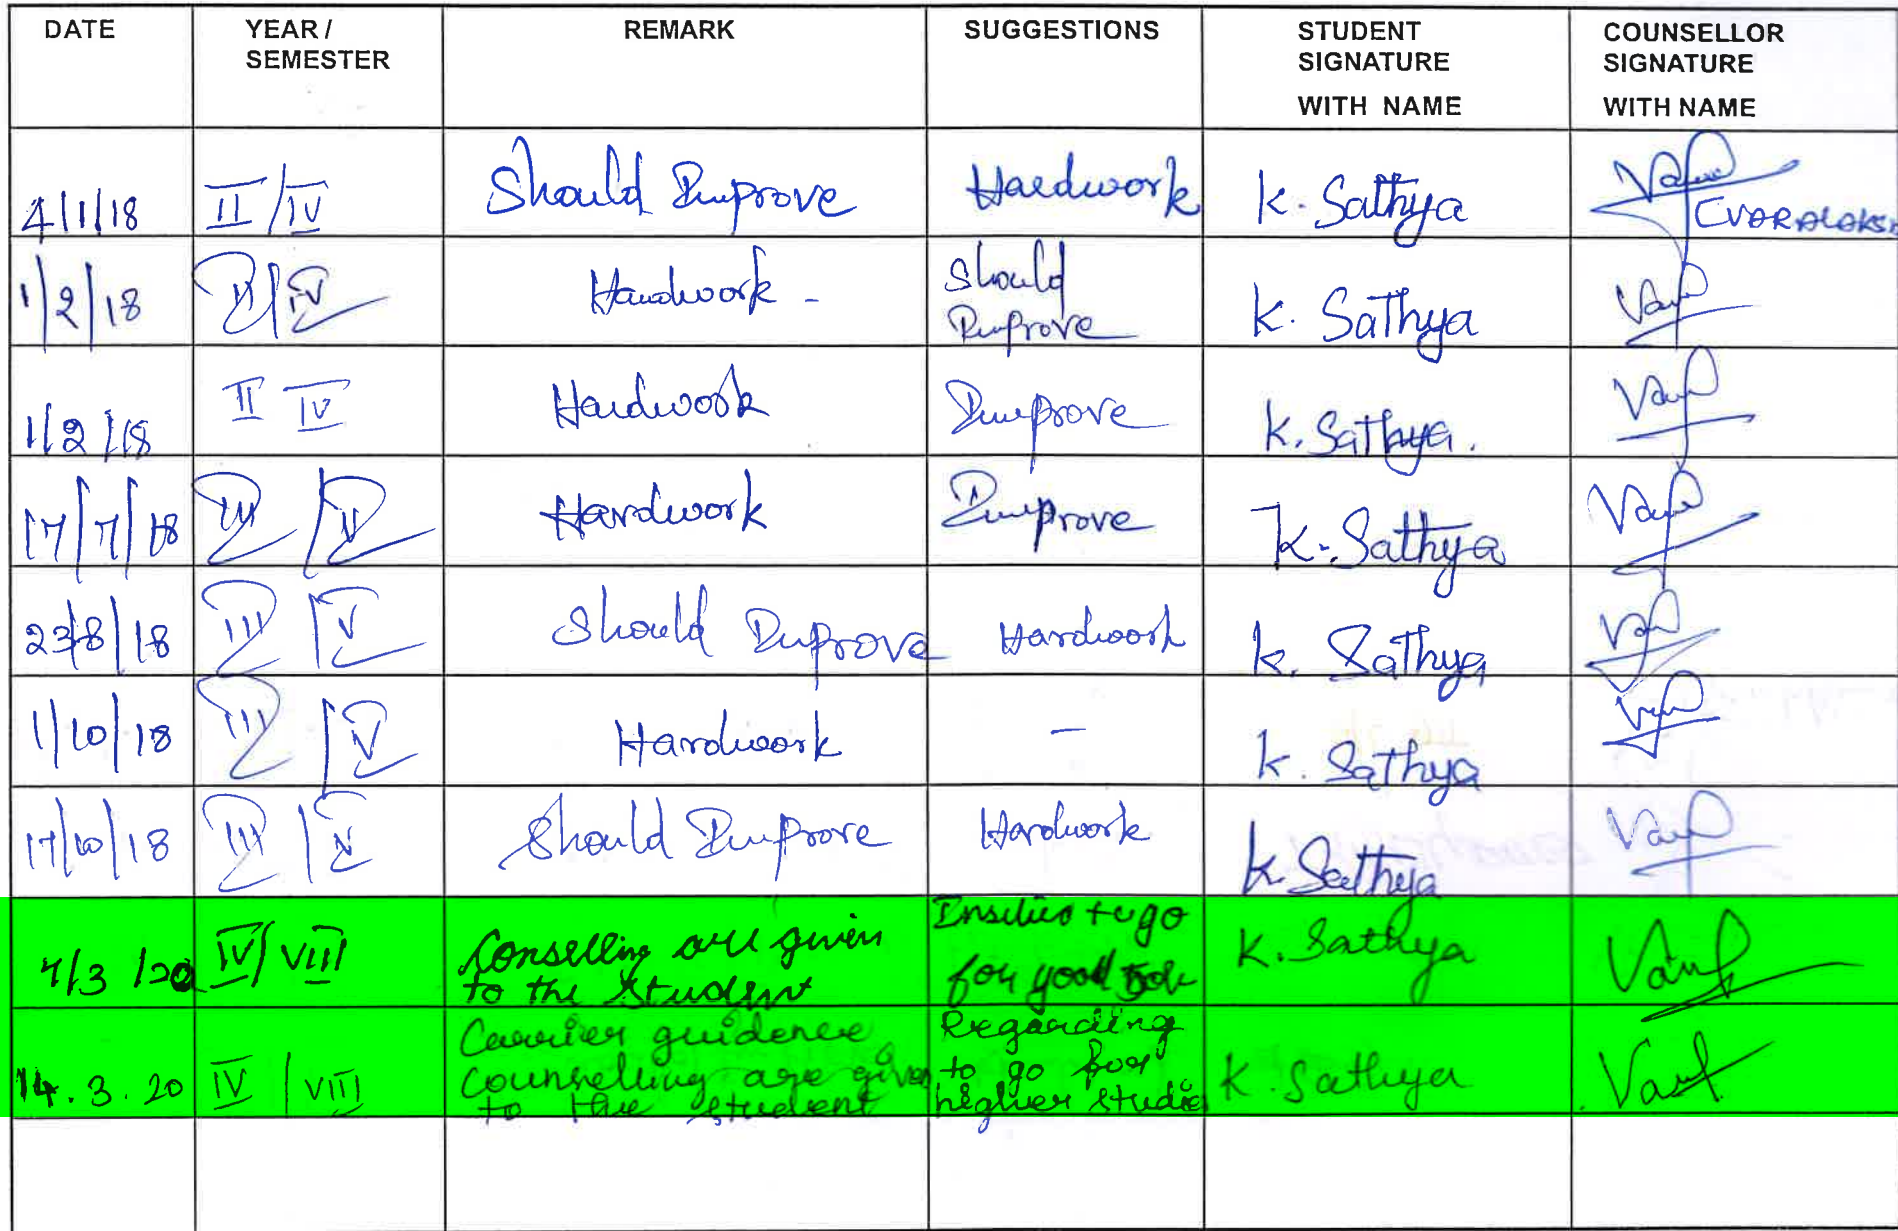 DATE YEAR / SEMESTER REMARK SUGGESTIONS STUDENT SIGNATURE WITH NAME COUNSELLOR SIGNATURE WITH NAME
4/1/18 II/IV Should Improve Hardwork K. Sathya
1/2/18 II/IV Hardwork - Should Improve K. Sathya
1/2/18 II IV Hardwork Improve K. Sathya.
17/7/18 III/V Hardwork Improve K. Sathya
23/8/18 III/V Should Improve Hardwork K. Sathya
1/10/18 III/V Hardwork - K. Sathya
17/10/18 III/V Should Improve Hardwork K Sathya
7/3/20 IV/VIII Conselling are given to the student to go for good Job K. Sathya
14.3.20 IV/VIII Carrier guidence counselling are given to the student Regarding to go for higher studies K. Sathya